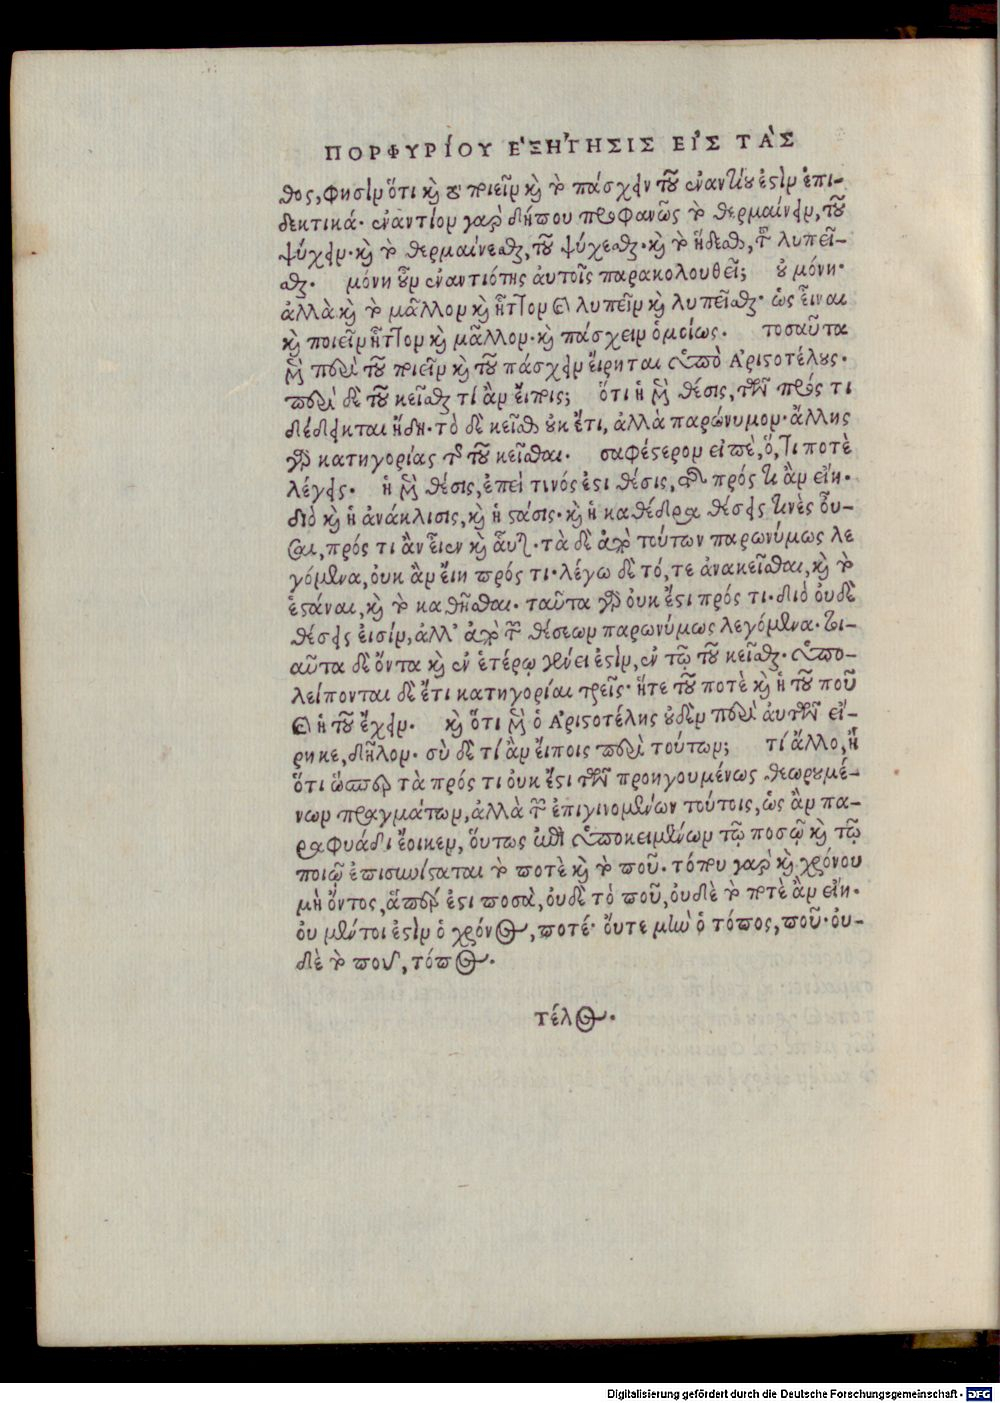 ΠΟΡΦΥΡΊΟΥ ἘΞΉΓΗΣΙΣ ΕἸΣ ΤᾺΣ
θος, φησὶν ὅτι καὶ τὸ ποιεῖν καὶ τὸ πάσχειν τοῦ ἐναντίου ἐστὶν ἐπι-
δεκτικά· ἐναντίον γὰρ δήπου προφανῶς τὸ θερμαίνειν, τοῦ
ψύχειν· καὶ τὸ θερμαίνεσθαι, τοῦ ψύχεσθαι· καὶ τὸ ἥδεσθαι, τοῦ λυπεῖ-
σθαι. μόνη οὖν ἐναντιότης ἀυτοῖς παρακολουθεῖ; οὐ μόνη·
ἀλλὰ καὶ τὸ μᾶλλον καὶ ἧττον καὶ λυπεῖν καὶ λυπεῖσθαι· ὡς εἶναι
καὶ ποιεῖν ἧττον καὶ μᾶλλον· καὶ πάσχειν ὁμοίως. τοσαῦτα
μὲν περὶ τοῦ ποιεῖν καὶ τοῦ πάσχειν ἔιρηται ὑπὸ Ἀριστοτέλους·
περὶ δὲ τοῦ κεῖσθαι τί ἂν ἔιποις; ὅτι ἡ μὲν θέσις, τῶν πρός τι
δέδεικται ἤδη· τὸ δὲ κεῖσθαι οὐκ ἔτι, ἀλλὰ παρώνυμον· ἄλλης
γὰρ κατηγορίας τῆς τοῦ κεῖσθαι. σαφέστερον εἰπὲ, ὅ,τι ποτὲ
λέγεις. ἡ μὲν θέσις, ἐπεὶ τινός ἐστι θέσις, τῶν πρός τι ἂν εἴη·
διὸ καὶ ἡ ἀνάκλισις, καὶ ἡ στάσις· καὶ ἡ καθέδρα θέσεις τινὲς οὖ-
σαι, πρός τι ἂν εἶεν καὶ ἆυται· τὰ δὲ ἀπὸ τούτων παρωνύμως λε
γόμενα, ὀυκ ἂν ἔιη πρός τι· λέγω δὲ τό,τε ἀνακεῖσθαι, καὶ τὸ
ἑστάναι, καὶ τὸ καθῆσθαι. ταῦτα γὰρ ὀυκ ἔστι πρός τι· διὸ ὀυδὲ
θέσεις εἰσίν, ἀλλ' ἀπὸ τῶν θέσεων παρωνύμως λεγόμενα. τοι-
αῦτα δὲ ὄντα καὶ ἐν ἑτέρῳ γένει ἐστὶν, ἐν τῷ τοῦ κεῖσθαι· ὑπο-
λείπονται δὲ ἔτι κατηγορίαι τρεῖς· ἥτε τοῦ ποτὲ καὶ ἡ τοῦ ποῦ
καὶ ἡ τοῦ ἔχειν. καὶ ὅτι μὲν ὁ Ἀριστοτέλης οὐδὲν περὶ ἀυτῶν εἴ-
ρηκε, δῆλον· σὺ δὲ τί ἂν ἔιποις περὶ τούτων; τί ἄλλο, ἢ
ὅτι ὥσπερ τὰ πρός τι ὀυκ ἔστι τῶν προηγουμένως θεωρουμέ-
νων πραγμάτων, ἀλλὰ τῶν ἐπιγινομένων τούτοις, ὡς ἂν πα-
ραφυάδι ἔοικεν, ὅυτως ἐπὶ ὑποκειμένων τῷ ποσῷ καὶ τῷ
ποιῷ ἐπισυνίσταται τὸ ποτὲ καὶ τὸ ποῦ. τόπου γὰρ καὶ χρόνου
μὴ ὄντος, ἅπερ ἐστι ποσὰ, ὀυδὲ τὸ ποῦ, ὀυδὲ τὸ ποτὲ ἂν εἴη·
ὀυ μέντοι ἐστὶν ὁ χρόνος, ποτέ· ὄυτε μὴν ὁ τόπος, ποῦ· ὀυ-
δὲ τὸ ποῦ, τόπος.
τέλος.
Digitalisierung gefördert durch die Deutsche Forschungsgemeinschaft - DFG